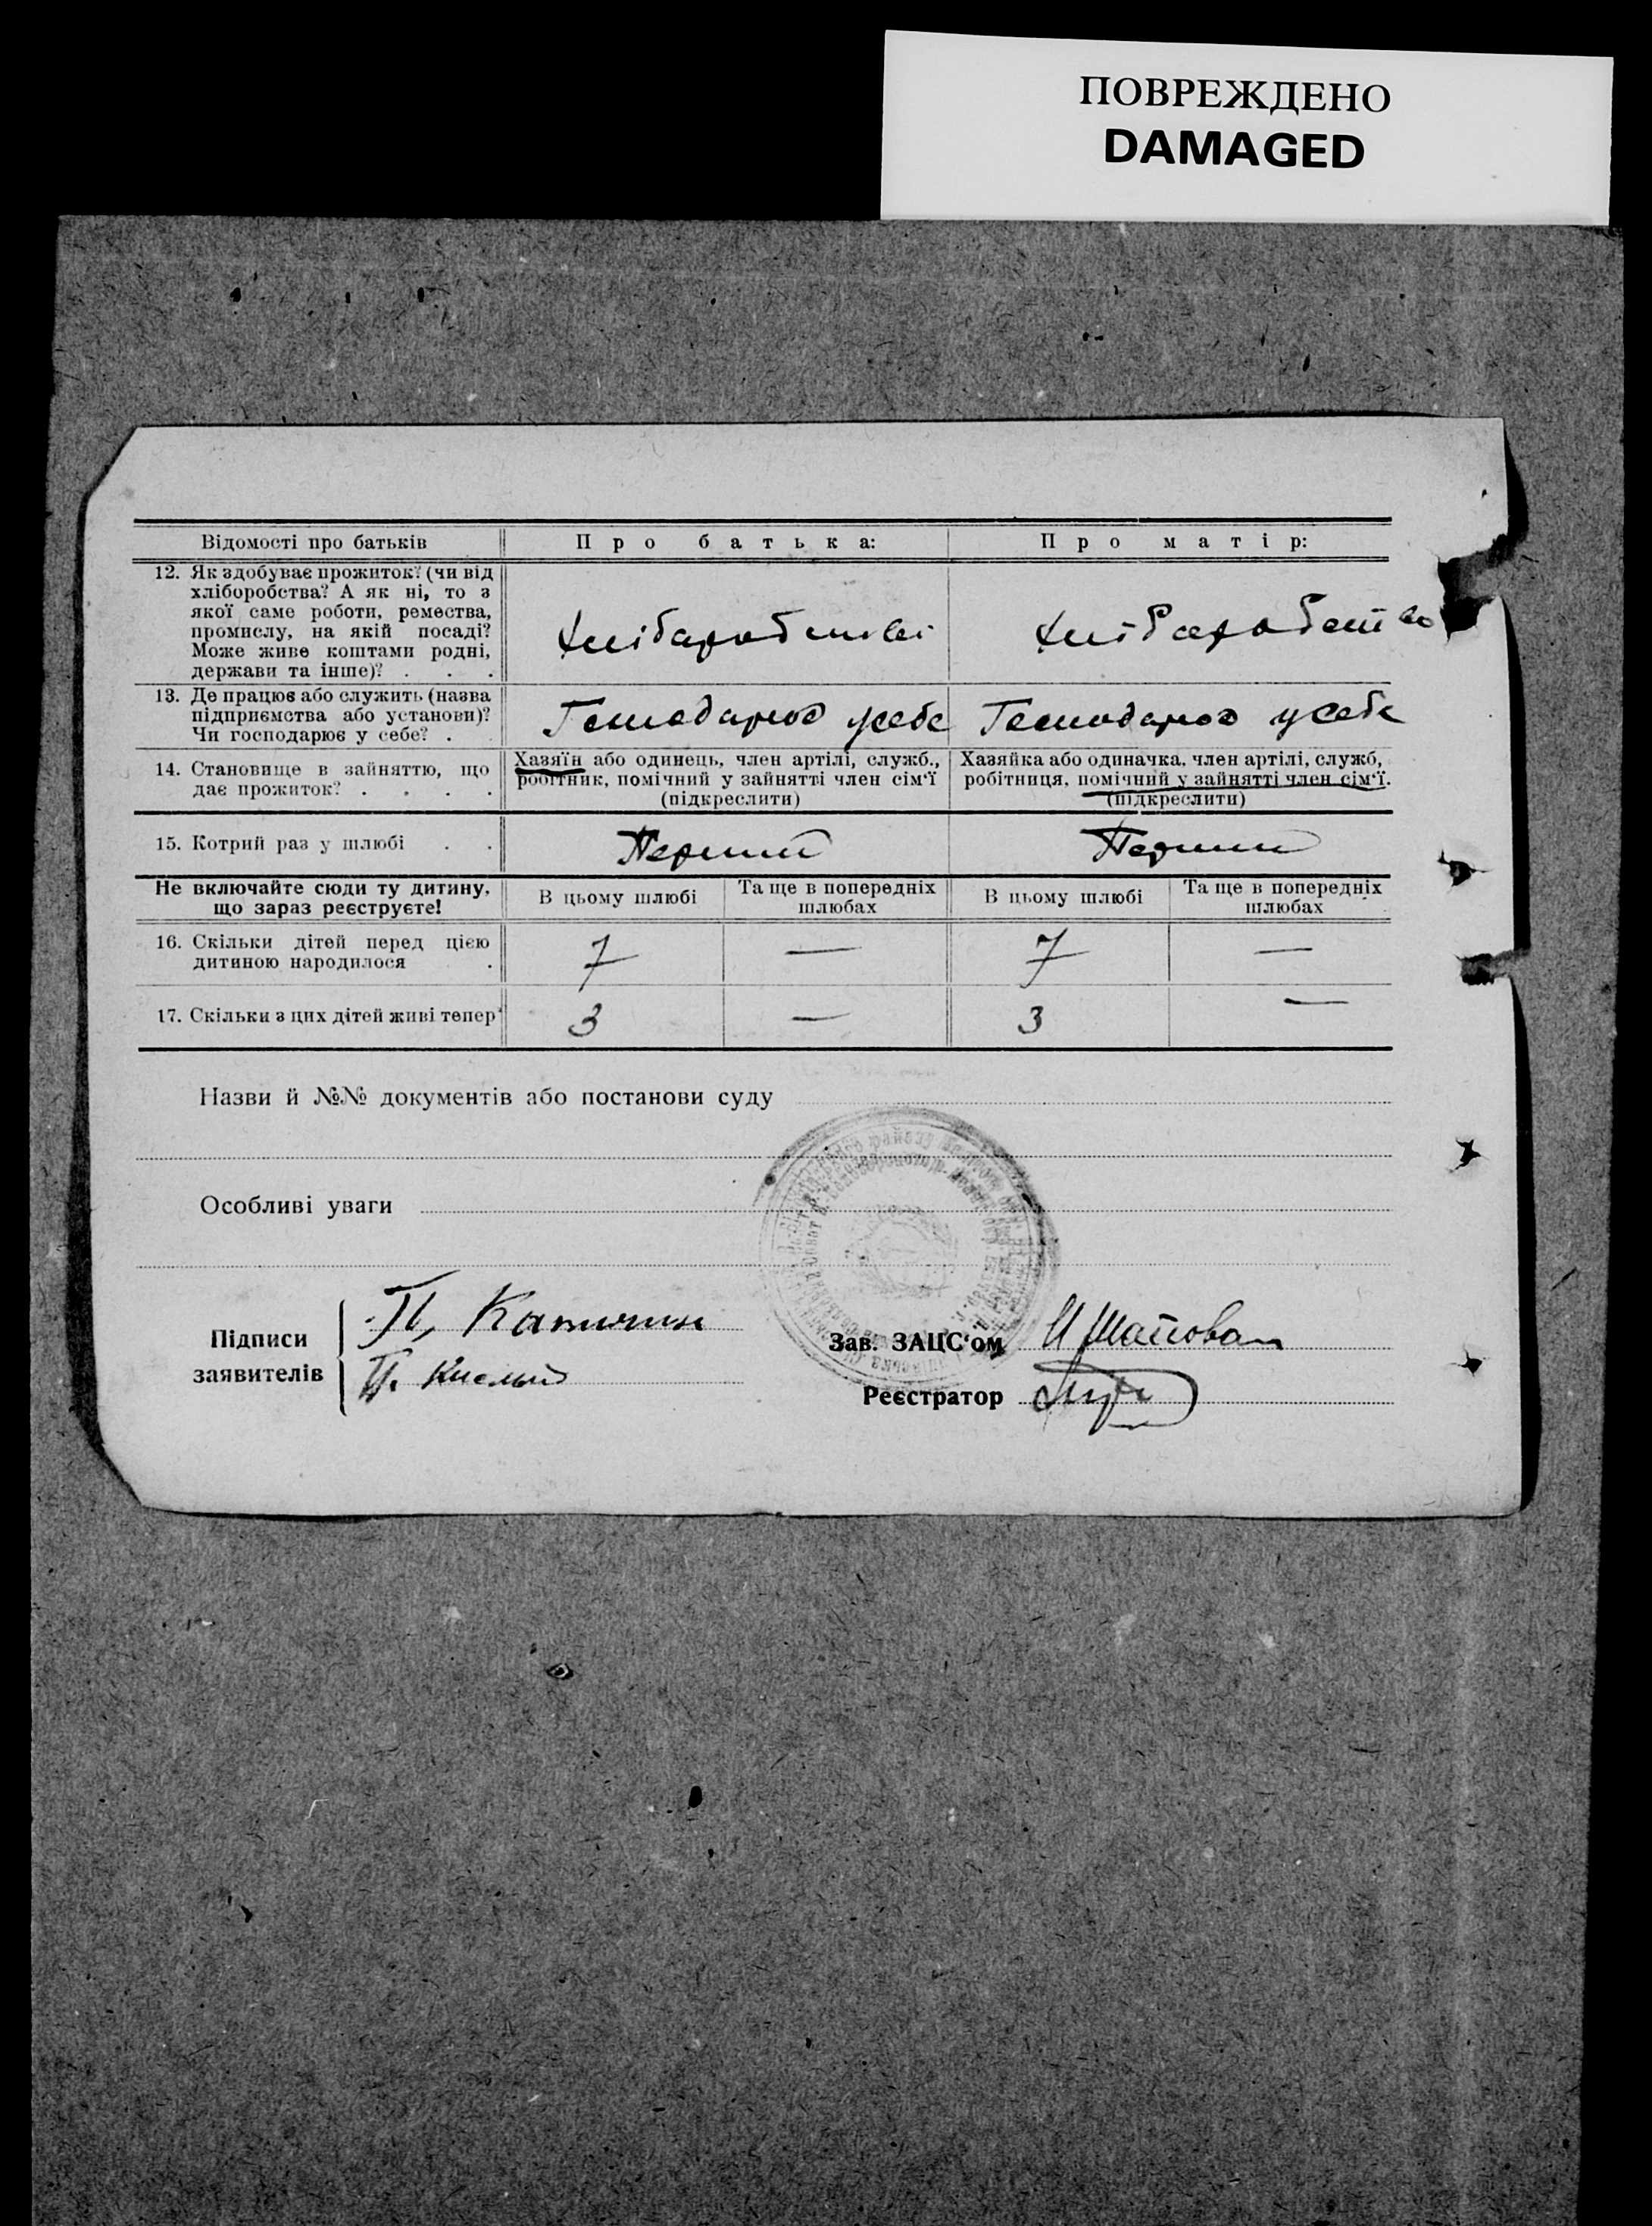 ПОВРЕЖДЕНО
DAMAGED
Відомості про батьків
Про батька:
Про матір:
12. Як здобуває прожиток? (чи від
хліборобства? А як ні, то з
якої саме роботи, ремества,
промислу, на якій посаді?
Може живе коштами родні,
держави та інше)? . . .
13. Де працює або служить (назва
підприємства або установи)?
Чи господарює у себе? .
Господарює у себе
Господарює у себе
14. Становище в зайняттю, що
дає прожиток? . . . .
Хазяїн або одинець, член артілі, служб.,
робітник, помічний у зайнятті член сім'ї
(підкреслити)
Хазяйка або одиначка, член артілі, служб,
робітниця, помічний у зайнятті член сім'ї.
(підкреслити)
15. Котрий раз у шлюбі . .
Перший
Перший
Не включайте сюди ту дитину,
що зараз реєструєте!
В цьому шлюбі
Та ще в попередніх
шлюбах
В цьому шлюбі
Та ще в попередніх
шлюбах
16. Скільки дітей перед цією
дитиною народилося .
7
—
7
—
17. Скільки з цих дітей живі тепер
3
—
3
—
Назви й №№ документів або постанови суду
Особливі уваги
Підписи
заявителів
П. Кислий
Зав. ЗАЦС'ом И Шаповал
Реєстратор